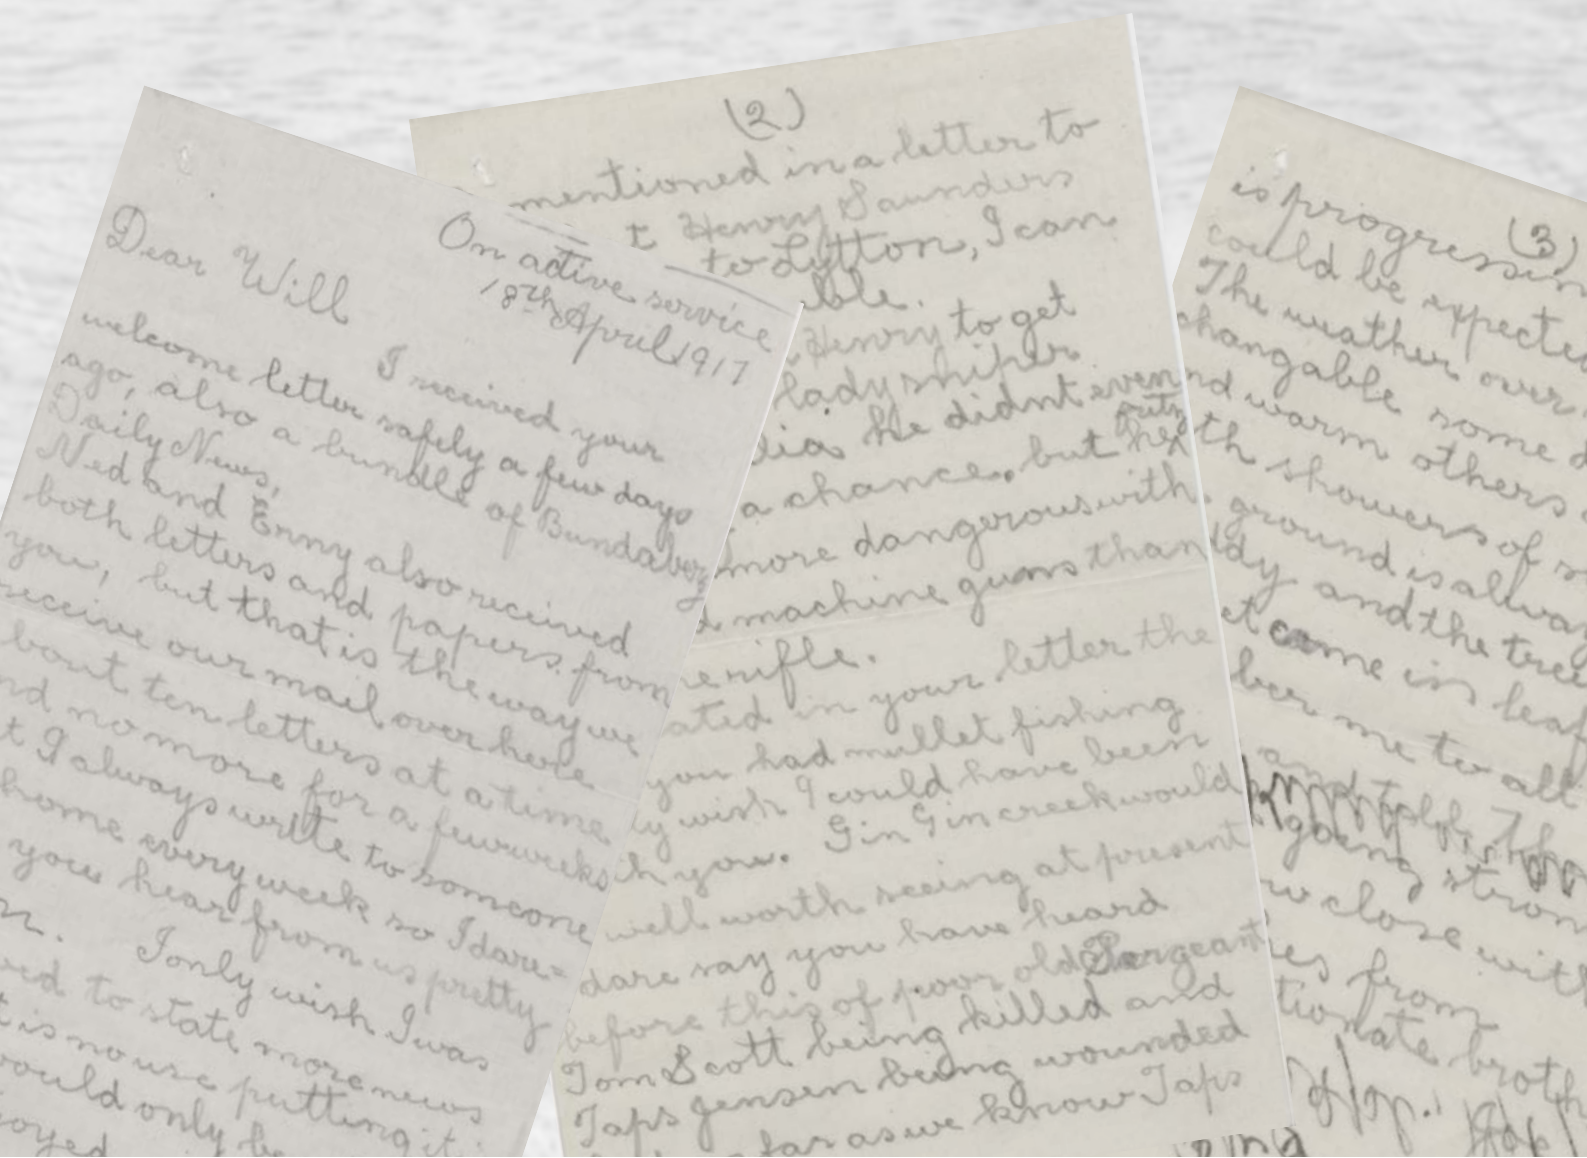 On active service
18th April 1917
Dear Will
I received your
welcome letter safely a few days
ago, also a bundle of Bundaberg
Daily News,
Ned and Erny also received
both letters and papers from
you, but that is the way we
receive our mail over here
bout ten letters at a time
nd no more for a few weeks
t I always write to someone
home every week so I dare=
you hear from us pretty
I only wish I was
ed to state more news
t is no use putting it
would only be
oyed
(2)
mentioned in a letter to
t Henry Saunders
to Lytton, I can
ble.
Henry to get
lady sniper
lia he didnt even
a chance, but they
more dangerous with
machine guns than
e rifle.
ated in your letter the
you had mullet fishing
ly wish I could have been
th you. Gin Gin creek would
well worth seeing at present
dare say you have heard
before this of poor old Sergeant
Tom Scott being killed and
Taps Jensen being wounded
far as we know Taps
(3)
is progressin
could be expected
The weather over
changable some d
nd warm others
th showers of s
ground is alway
ddy and the tree
et come in leaf
ber me to all
and tell
going stron
w close with
es from
tionate broth